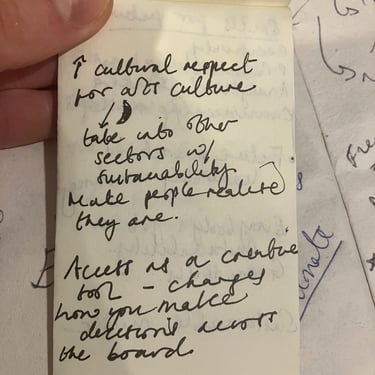 ↑ cultural respect
for arts culture
take into other
sectors w/
sustainability
Make people realise
they are.
Access as a creative
tool - changes
how you make
decisions across
the board.